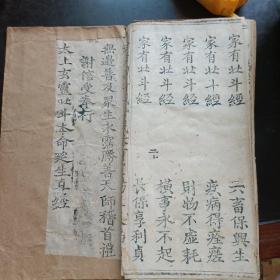 家有北斗經 六畜保興生
家有北斗經 疫病得痊瘥
家有北斗經 財物不虛耗
家有北斗經 橫事永不起
家有北斗經 長保享利貞
無邊普及眾生永霑勝善天師稽首禮
謝信受奉行
太上玄靈北斗本命延生真經